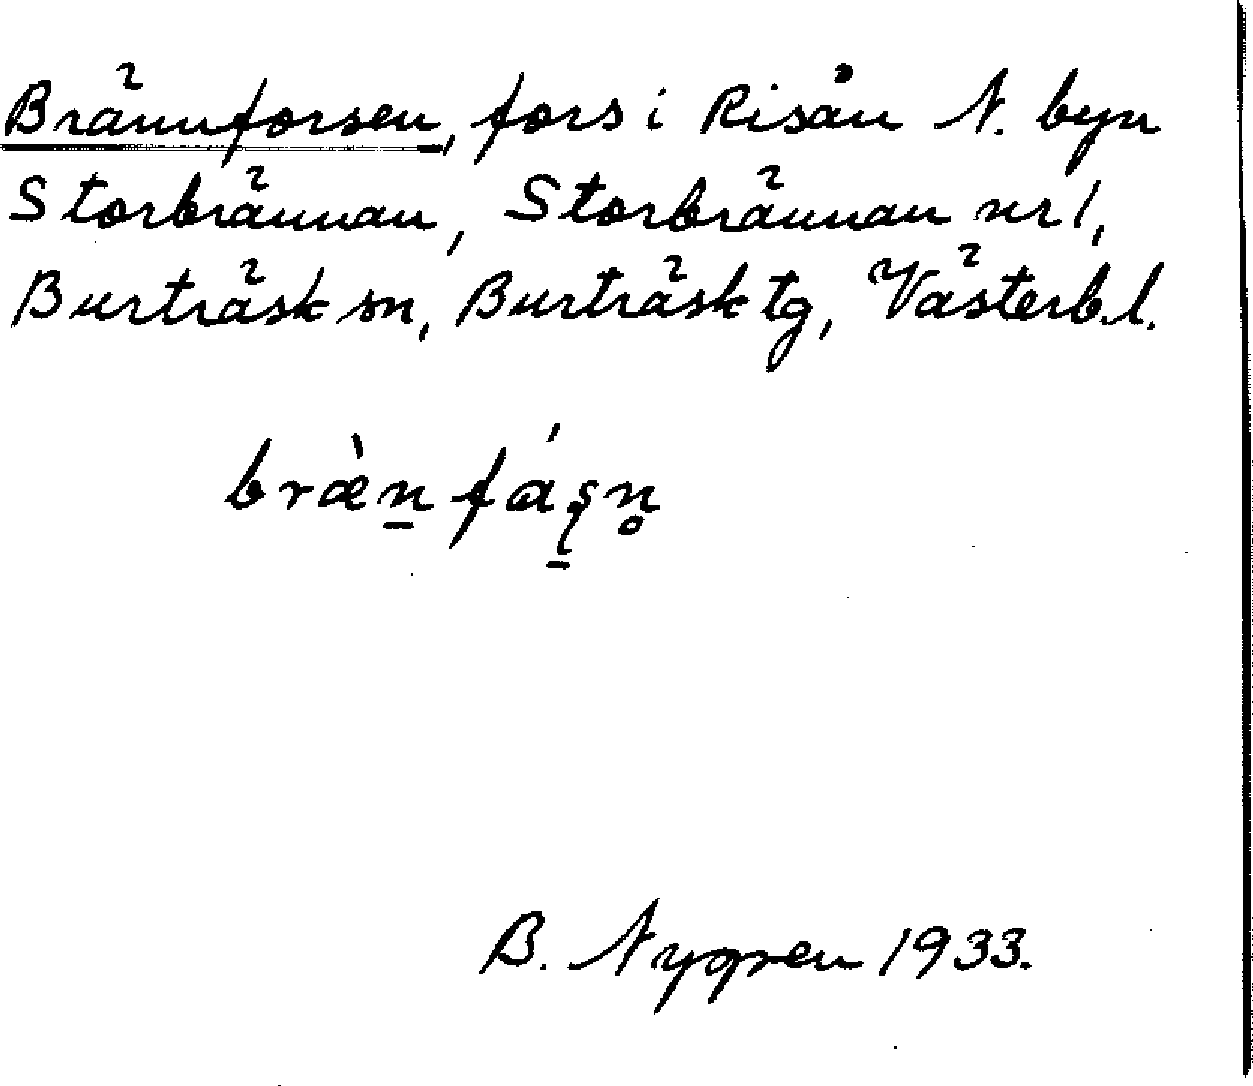 Brännforsen, fors i Risån N. byn
Storbrännan, Storbrännan nr 1,
Burträsk sn, Burträsk tg, Västerb.l.
bræ̀n̠fáʂ̠n̥
B. Nygren 1933.